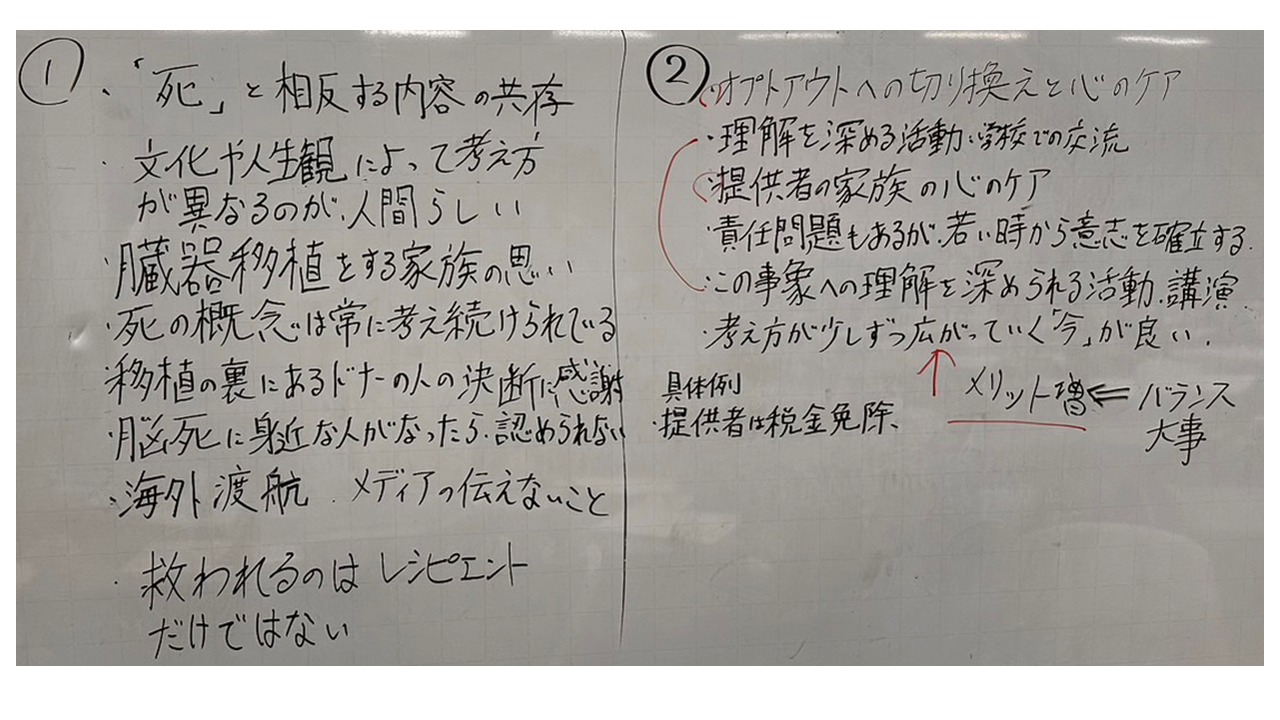 ①
・「死」と相反する内容の共存
・文化や人生観によって考え方
が異なるのが、人間らしい
・臓器移植をする家族の思い
・死の概念は常に考え続けられている
・移植の裏にあるドナーの人の決断に感謝
・脳死に身近な人がなったら、認められない
・海外渡航、メディアの伝えないこと
・救われるのはレシピエント
だけではない
②
・オプトアウトへの切り換えと心のケア
・理解を深める活動、学校での交流
・提供者の家族の心のケア
・責任問題もあるが、若い時から意志を確立する。
・この事象への理解を深められる活動、講演
・考え方が少しずつ広がっていく「今」が良い。
↑ メリット増 ⇐ バランス
大事
具体例
・提供者は税金免除、